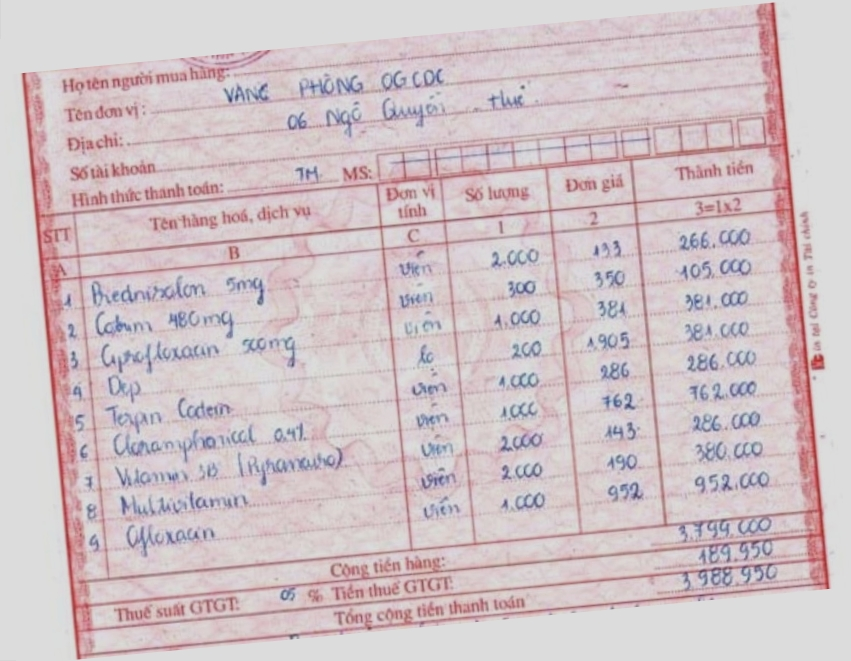 Họ tên người mua hàng:
Tên đơn vị : VĂNG PHÒNG OGCDC
Địa chỉ: 06 Ngô Quyền Huế
Số tài khoản
Hình thức thanh toán: TM MS:
STT Tên hàng hoá, dịch vụ Đơn vị tính Số lượng Đơn giá Thành tiền
A B C 1 2 3=1x2
1 Prednizolon 5mg viên 2.000 133 266.000
2 Cotrim 480mg viên 300 350 105.000
3 Ciprofloxacin 500mg viên 1.000 381 381.000
4 Dep lọ 200 1.905 381.000
5 Terpin Codein viên 1.000 286 286.000
6 Cloramphenicol 0,4% viên 1000 762 762.000
7 Vitamin 3B viên 2.000 143 286.000
8 Multivitamin viên 2.000 190 380.000
9 Ofloxacin viên 1.000 952 952.000
Cộng tiền hàng: 3.799.000
Thuế suất GTGT: 05 % Tiền thuế GTGT: 189.950
Tổng cộng tiền thanh toán 3.988.950